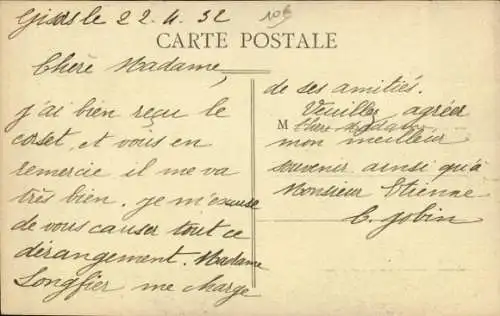 Gisors le 22.4.32
10€
CARTE POSTALE
Chère Madame,
j'ai bien reçu le
corset et vous en
remercie il me va
très bien. je m'excuse
de vous causer tout ce
dérangement. Madame
Longfier me charge
de ses amitiés.
Veuillez agréer
M Chère Madame
mon meilleur
souvenir ainsi qu'à
Monsieur Etienne
C. Jobin